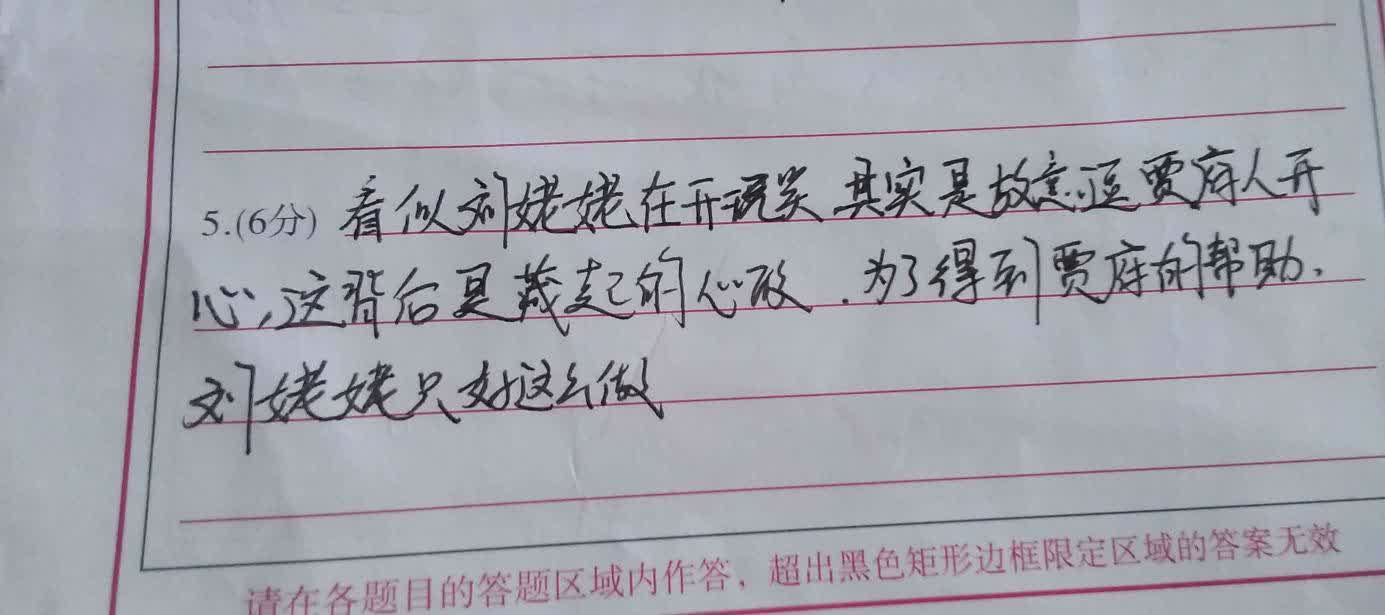 5.(6分) 看似刘姥姥在开玩笑 其实是故意逗贾府人开
心,这背后是藏起的心酸.为了得到贾府的帮助.
刘姥姥只好这么做
请在各题目的答题区域内作答，超出黑色矩形边框限定区域的答案无效